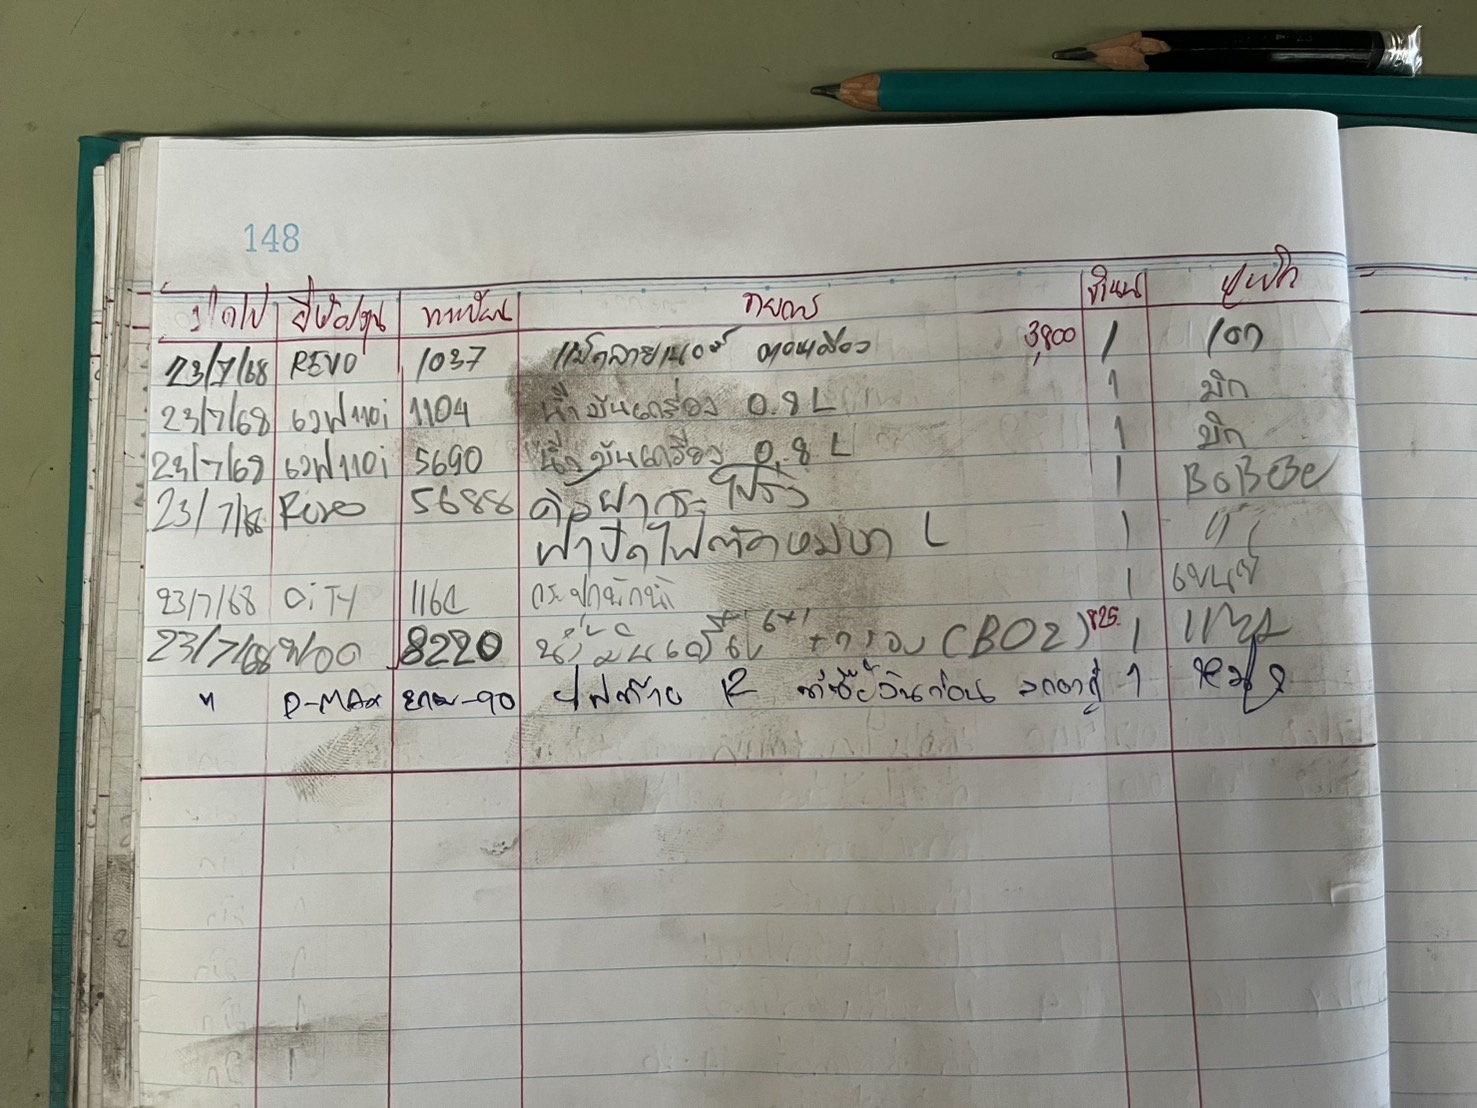 148
ว/ด/ป ยี่ห้อ/รุ่น ทะเบียน รายการ จำนวน ผู้เบิก
23/7/68 REVO 1037 แม็คลายเนอร์ ตอนเดียว 3,800 1 เอก
23/7/68 เวฟ110i 1104 น้ำมันเครื่อง 0.8 L 1 มิก
23/7/68 เวฟ110i 5690 น้ำมันเครื่อง 0.8 L 1 มิก
23/7/68 Revo 5688 คิ้วฝากระโปรง 1 BOBOBe
ฝาปิดไฟตัดหมอก L 1 "
23/7/68 CiTY 1160 กระปุกฉีดน้ำ 1
23/7/68 8220 น้ำมันเครื่อง 6+1 + กรอง (BO2) 825 1
" D-MAX ยกม-90 ไฟท้าย R ที่ซื้อวันก่อน 1